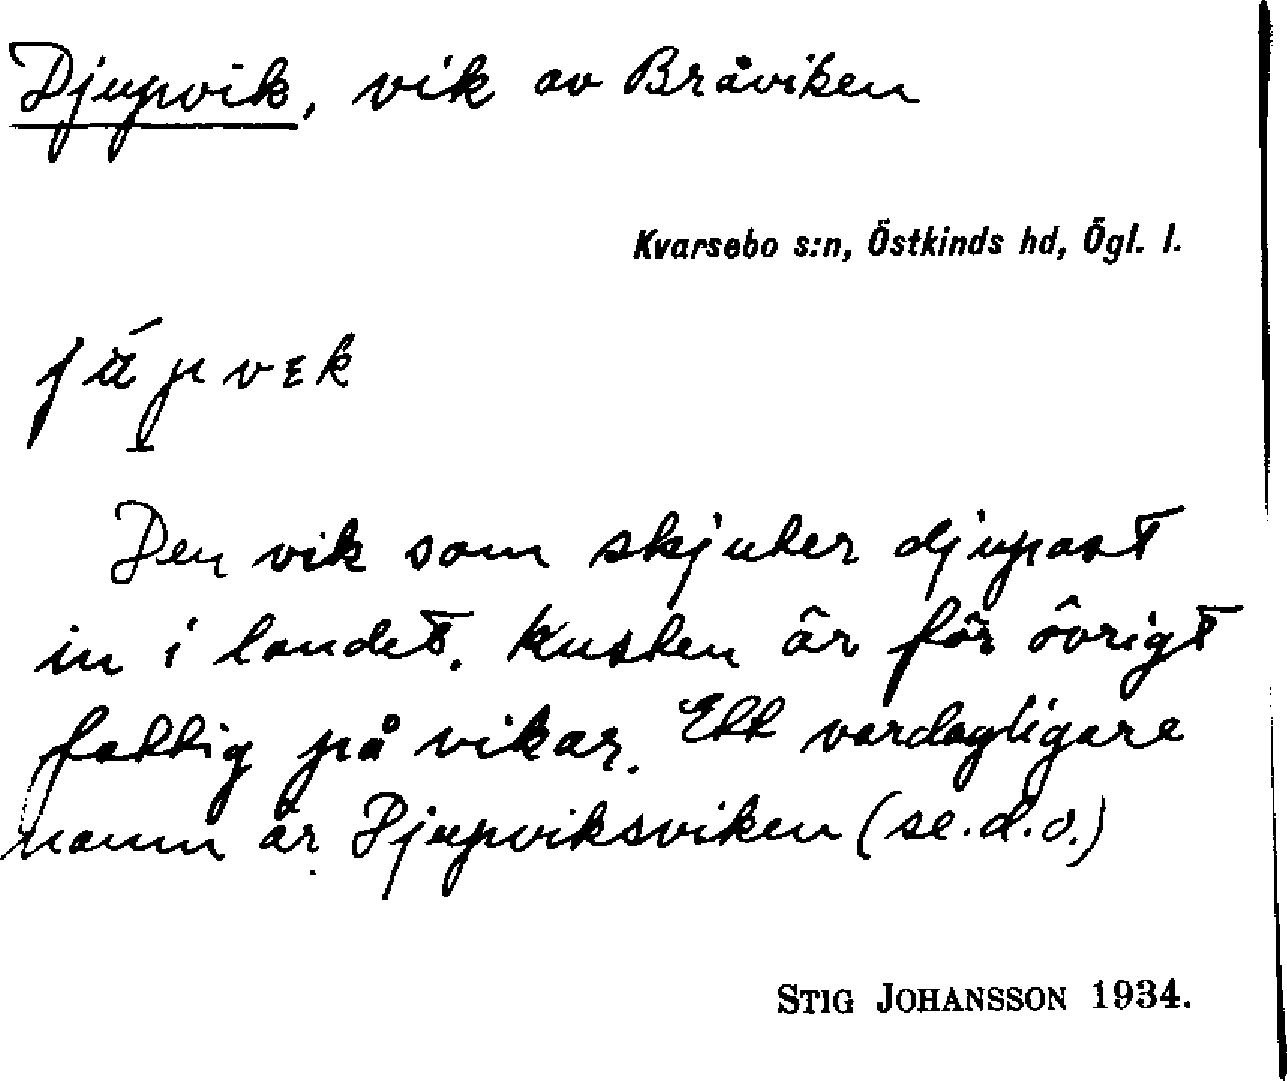 Djupvik, vik av Bråviken
Kvarsebo s:n, Östkinds hd, Ögl. l.
Den vik som skjuter djupast
in i landet. Kusten är för övrigt
fattig på vikar. Ett vardagligare
namn är Djupviksviken (se. d. o.)
STIG JOHANSSON 1934.